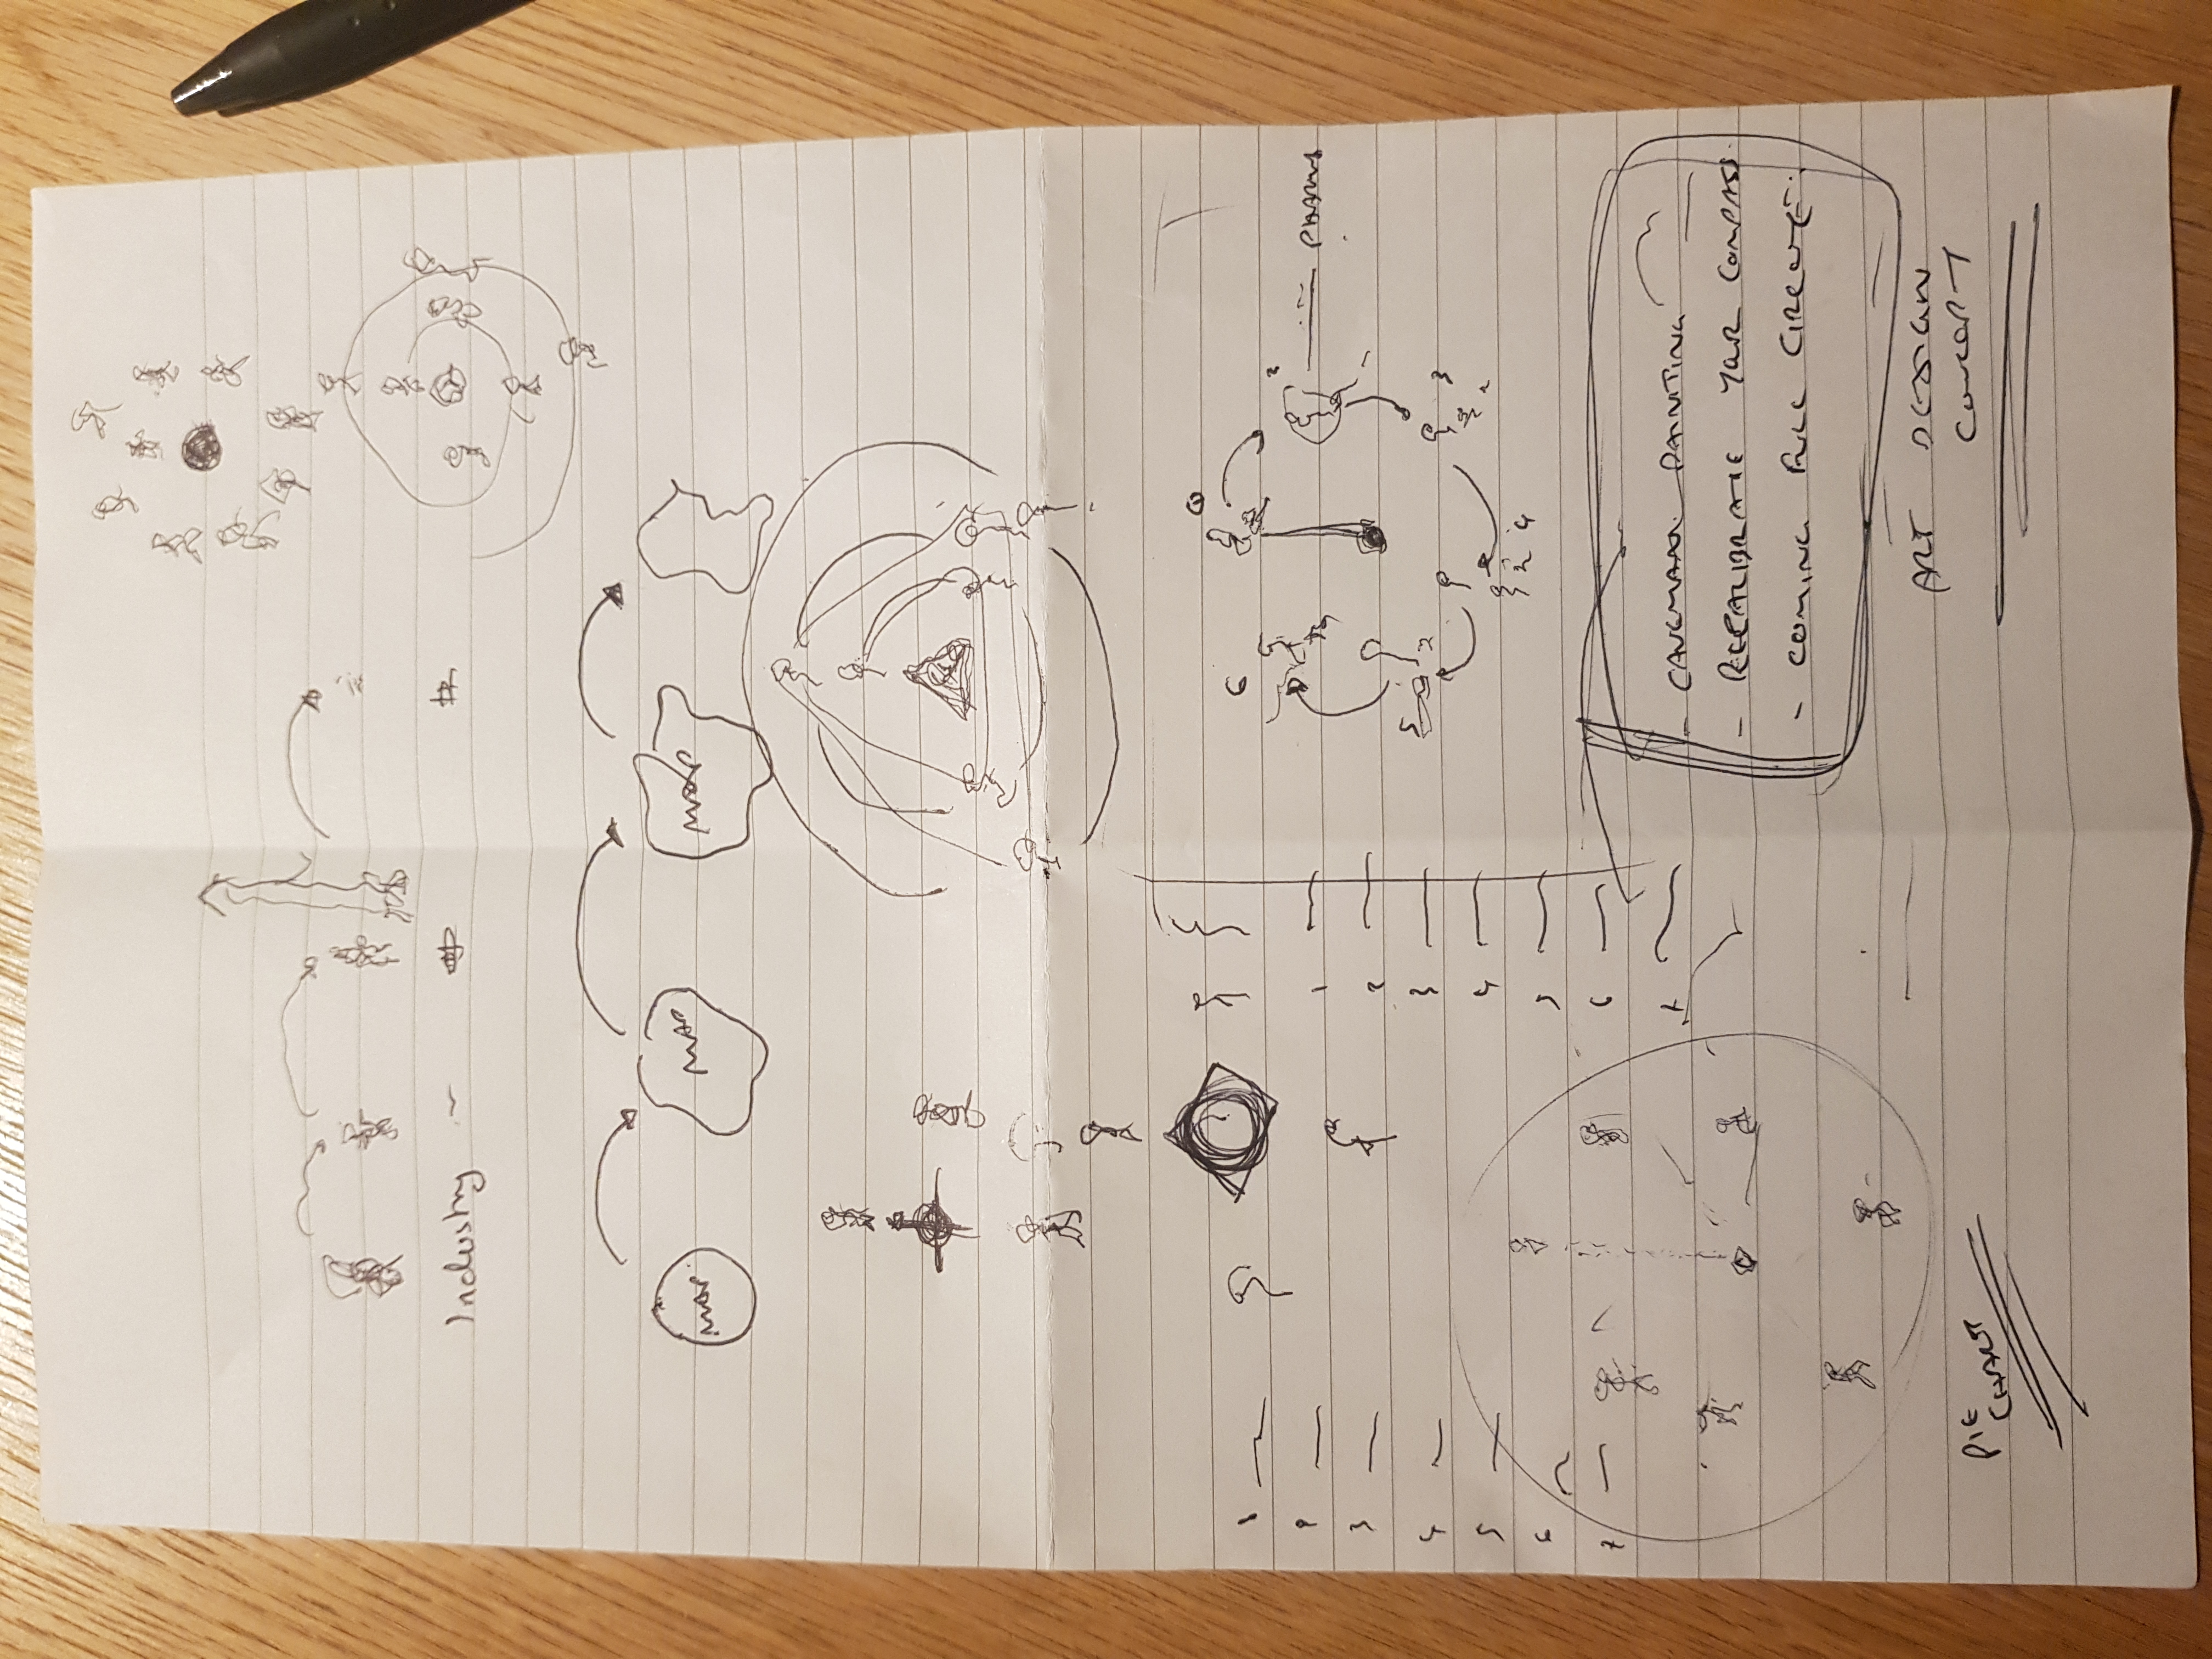 Industry -
MAP MAP MAP
1
2
3
4
5
6
7
1
2
3
4
5
6
1
2
3
2
2 4
5
2
6
- CAVEMAN PAINTING
- RECALIBRATE YOUR COMPASS
- COMING FULL CIRCLE
ART DESIGN
CONCEPT
PIE
CHART